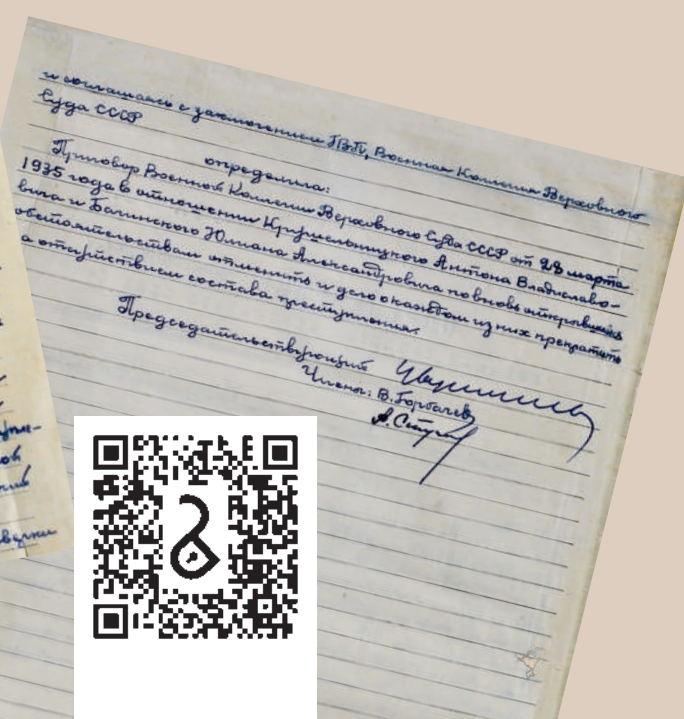 и соглашаясь с заключением ГВП, Военная Коллегия Верховного
Суда СССР
определила:
Приговор Военной Коллегии Верховного Суда СССР от 28 марта
1935 года в отношении Крушельницкого Антона Владиславо-
вича и Бачинского Юлиана Александровича по вновь открывшимся
обстоятельствам отменить и дело о каждом из них прекратить
за отсутствием состава преступления.
Председательствующий
Члены: В. Борбачев